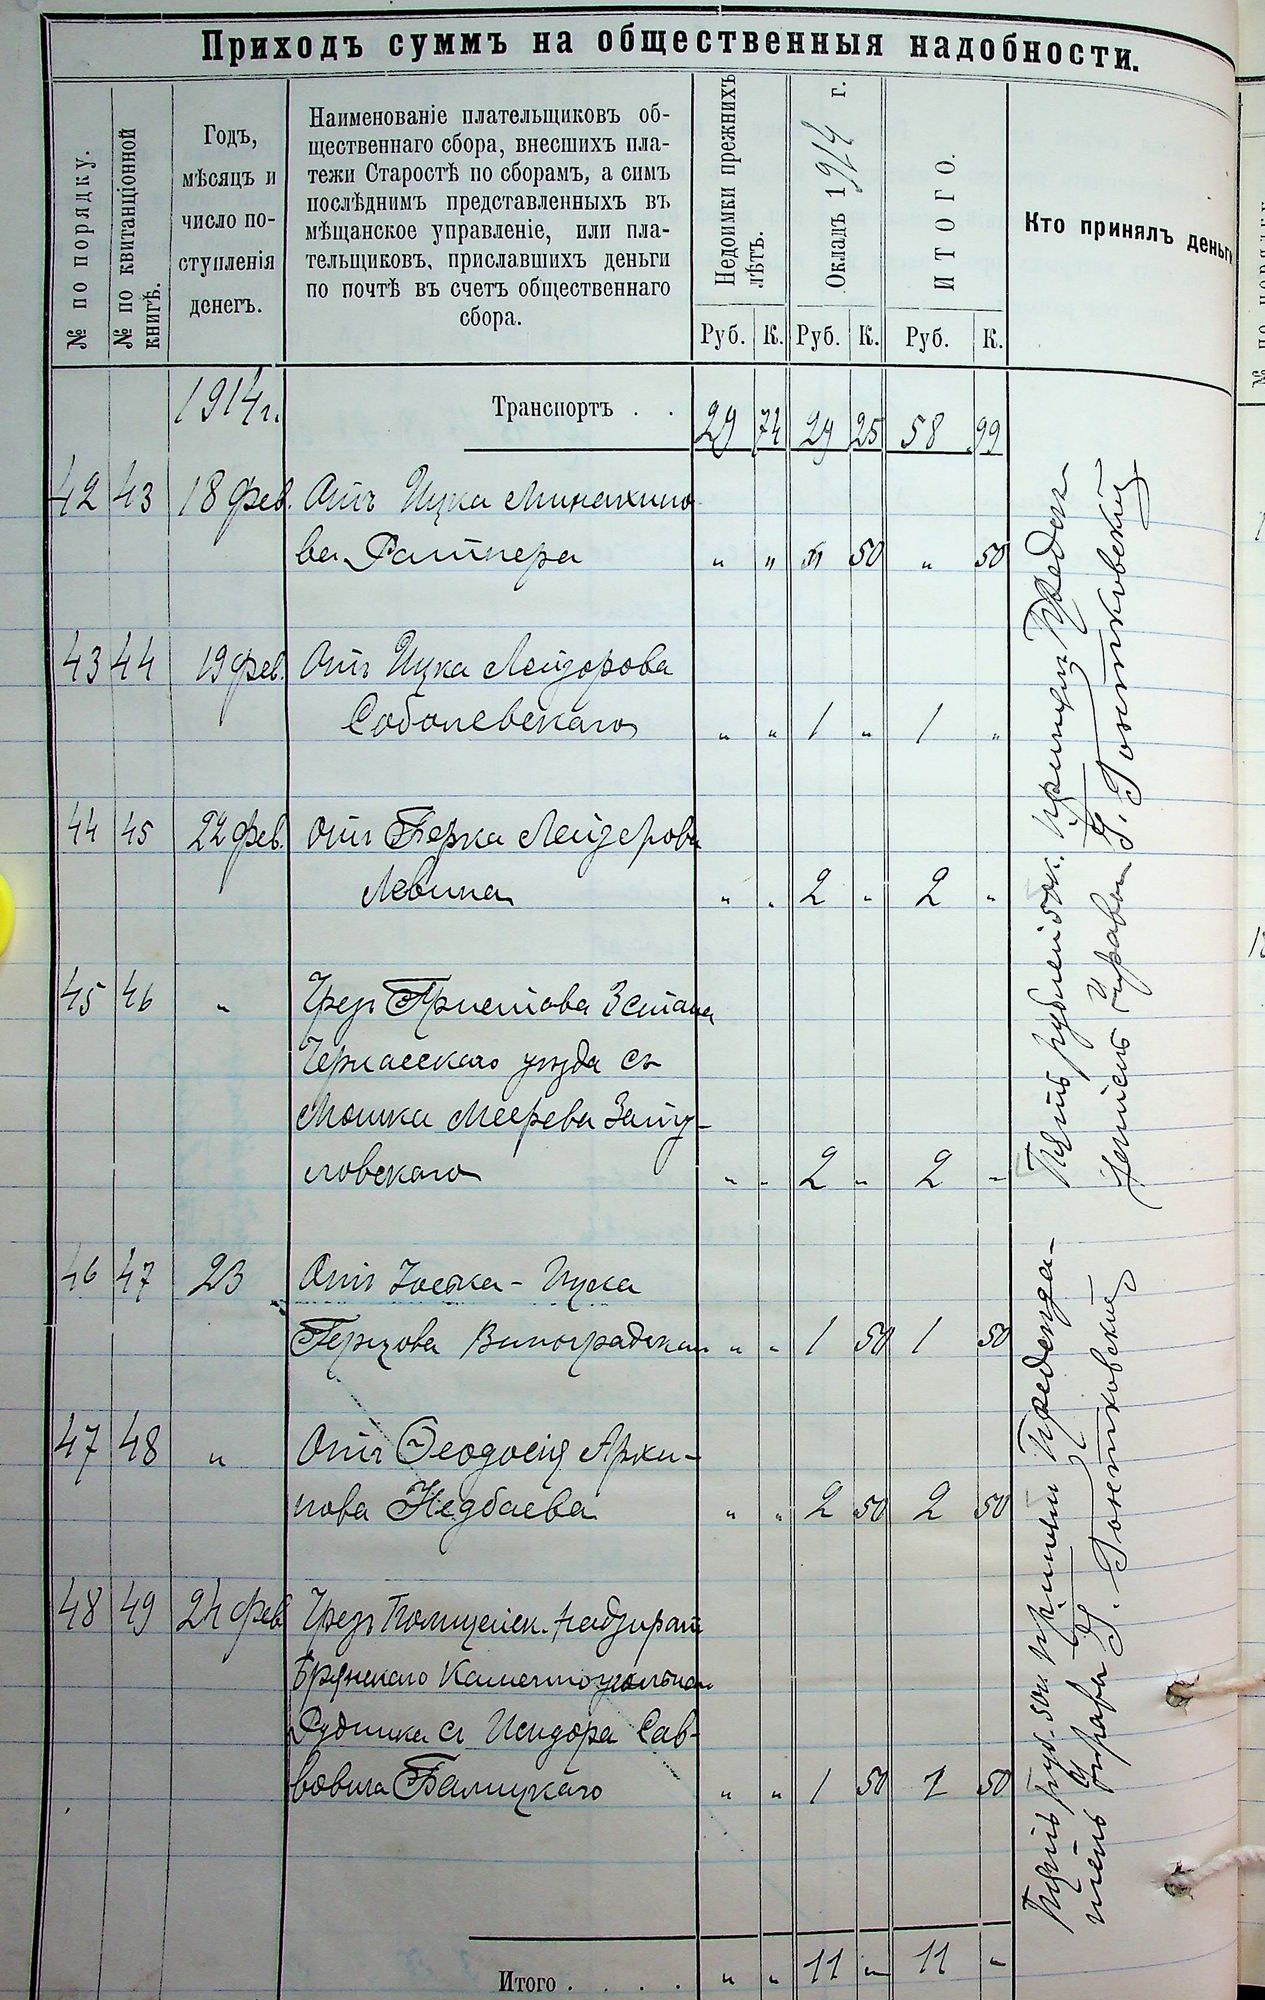 Приходъ суммъ на общественныя надобности.
№ по порядку.
№ по квитанціонной
книгѣ.
Годъ,
мѣсяцъ и
число по-
ступленія
денегъ.
Наименованіе плательщиковъ об-
щественнаго сбора, внесшихъ пла-
тежи Старостѣ по сборамъ, а симъ
послѣднимъ представленныхъ въ
мѣщанское управленіе, или пла-
тельщиковъ, приславшихъ деньги
по почтѣ въ счетъ общественнаго
сбора.
Недоимки прежнихъ
лѣтъ.
Окладъ 1914 г.
ИТОГО.
Кто принялъ деньги
Руб. К. Руб. К. Руб. К.
1914 г. Транспортъ . . 29 74 29 25 58 99
42 43 18 фев. Отъ Ицка Минахимо
ва Ратнера " " " 50 " 50
43 44 19 фев. Отъ Ицка Лейзорова
Соболевскаго " " 1 " 1 "
44 45 22 фев. Отъ Берка Лейзерова
Левина " " 2 " 2 "
45 46 " Чрез Пристава 3 стана
Черкасского уезда съ
Мошка Меерева Зату-
ловскаго " " 2 " 2 "
46 47 23 Отъ Иосека - Ицка
Герцова Виноградскаго " " 1 50 1 50
47 48 " Отъ Ѳеодосія Архи-
пова Недбаева " " 2 50 2 50
48 49 24 фев Чрез Полицейск. Надзират
Брянскаго Каменноугольнаго
Рудника съ Исидора Сав-
вовича Балицкаго " " 1 50 1 50
Пять рублей 50 к. принял Председ
Членъ управы Г. Гонтковский
Пять руб. 50 к. принял Председа-
Членъ управы Г. Гонтковский
Итого . . . . " " 11 " 11 "